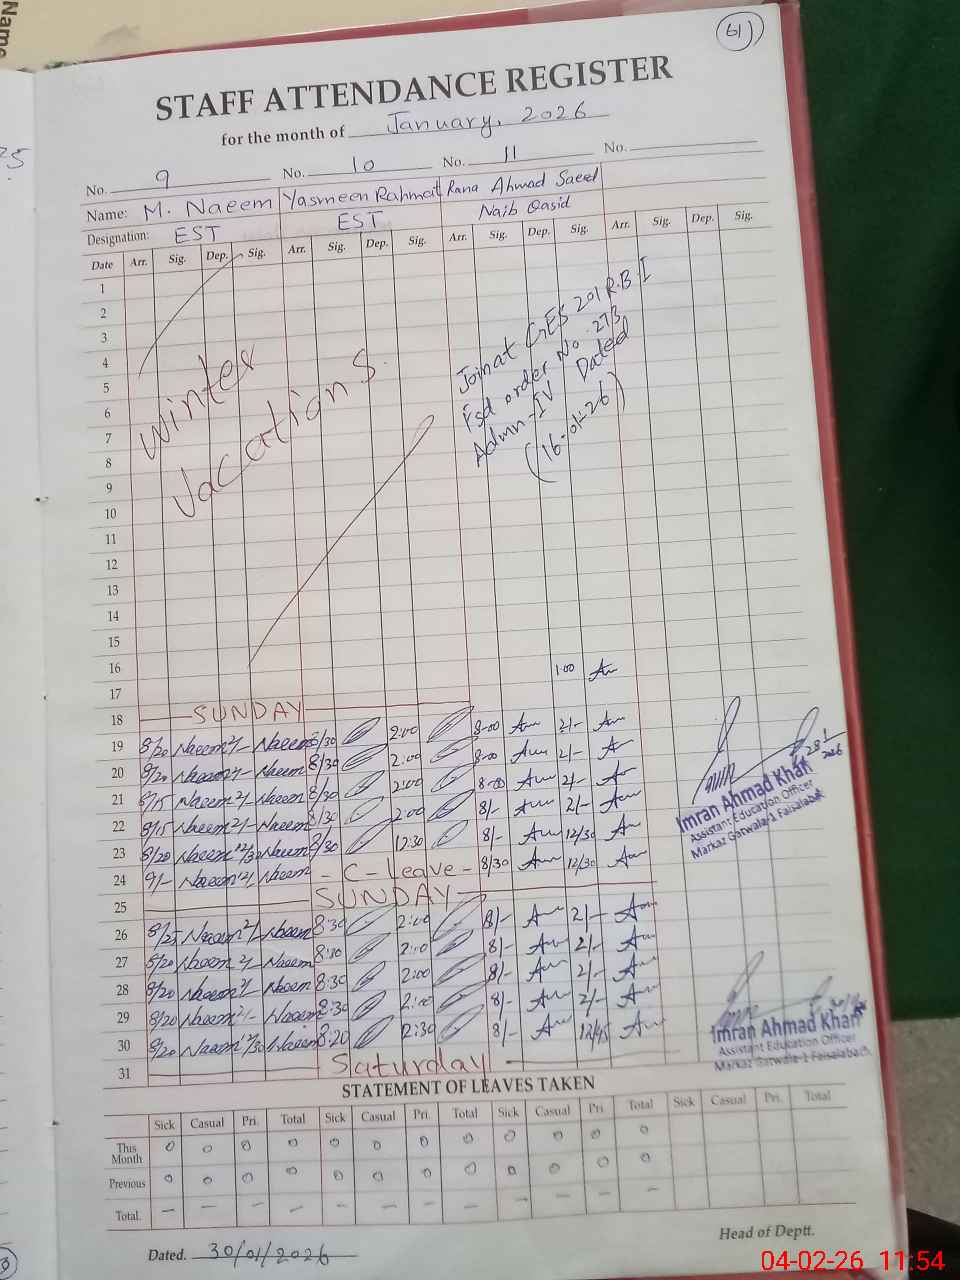 61
STAFF ATTENDANCE REGISTER
for the month of January, 2026
No. 9 No. 10 No. 11 No.
Name: M. Naeem Yasmeen Rahmat Rana Ahmad Saeed
Designation: EST EST Naib Qasid
Date Arr. Sig. Dep. Sig. Arr. Sig. Dep. Sig. Arr. Sig. Dep. Sig. Arr. Sig. Dep. Sig.
1
2
3
4
5
6
7
8
9
10
11
12
13
14
15
Winter
Vacations
Join at GES 201 R.B-I
Fsd order No. 273
Admn-IV Dated
(16-01-26)
16 1:00
17
18 SUNDAY
19 8/20 Naeem 2/- Naeem 8/30 2:00 8-00 2/-
20 8/20 Naeem 2/- Naeem 8/30 2:00 8-00 2/-
21 8/15 Naeem 2/- Naeem 8/30 2:00 8-00 2/-
22 8/15 Naeem 2/- Naeem 8/30 2:00 8/- 2/-
23 8/20 Naeem 12/30 Naeem 8/30 12:30 8/- 12/30
24 9/- Naeem 2/- Naeem - C - Leave - 8/30 12/30
25 SUNDAY
26 8/25 Naeem 2/- Naeem 8:30 2:00 8/- 2/-
27 8/20 Naeem 2/- Naeem 8:30 2:00 8/- 2/-
28 8/20 Naeem 2/- Naeem 8:30 2:00 8/- 2/-
29 8/20 Naeem 2/- Naeem 8:30 2:00 8/- 2/-
30 8/20 Naeem 12/30 Naeem 8:20 12:30 8/- 12/45
31 Saturday
28/1
2026
Imran Ahmad Khan
Assistant Education Officer
Markaz Gatwala-1 Faisalabad
Imran Ahmad Khan
Assistant Education Officer
Markaz Gatwala-1 Faisalabad.
STATEMENT OF LEAVES TAKEN
Sick Casual Pri. Total Sick Casual Pri. Total Sick Casual Pri Total Sick Casual Pri. Total
This Month 0 0 0 0 0 0 0 0 0 0 0 0
Previous 0 0 0 0 0 0 0 0 0 0 0 0
Total. — — — — — — — — — — — —
Dated. 30/01/2026
Head of Deptt.
04-02-26 11:54